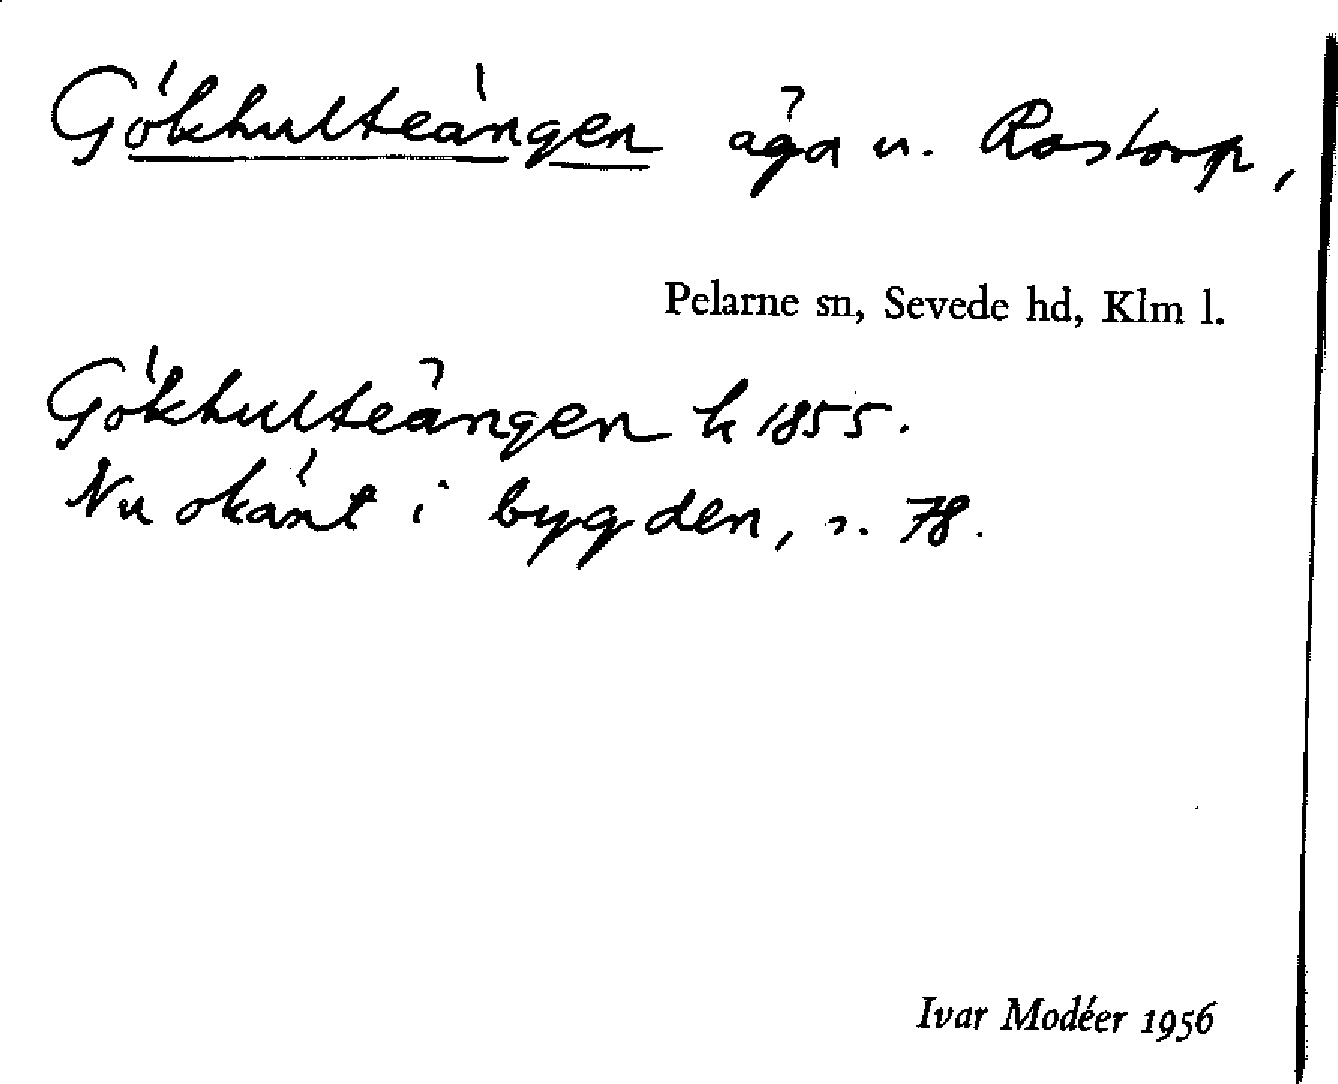 Gökhulteängen äga u. Rostorp,
Pelarne sn, Sevede hd, Klm l.
Gökhulteängen k 1855.
Nu okänt i bygden, s. 78.
Ivar Modéer 1956